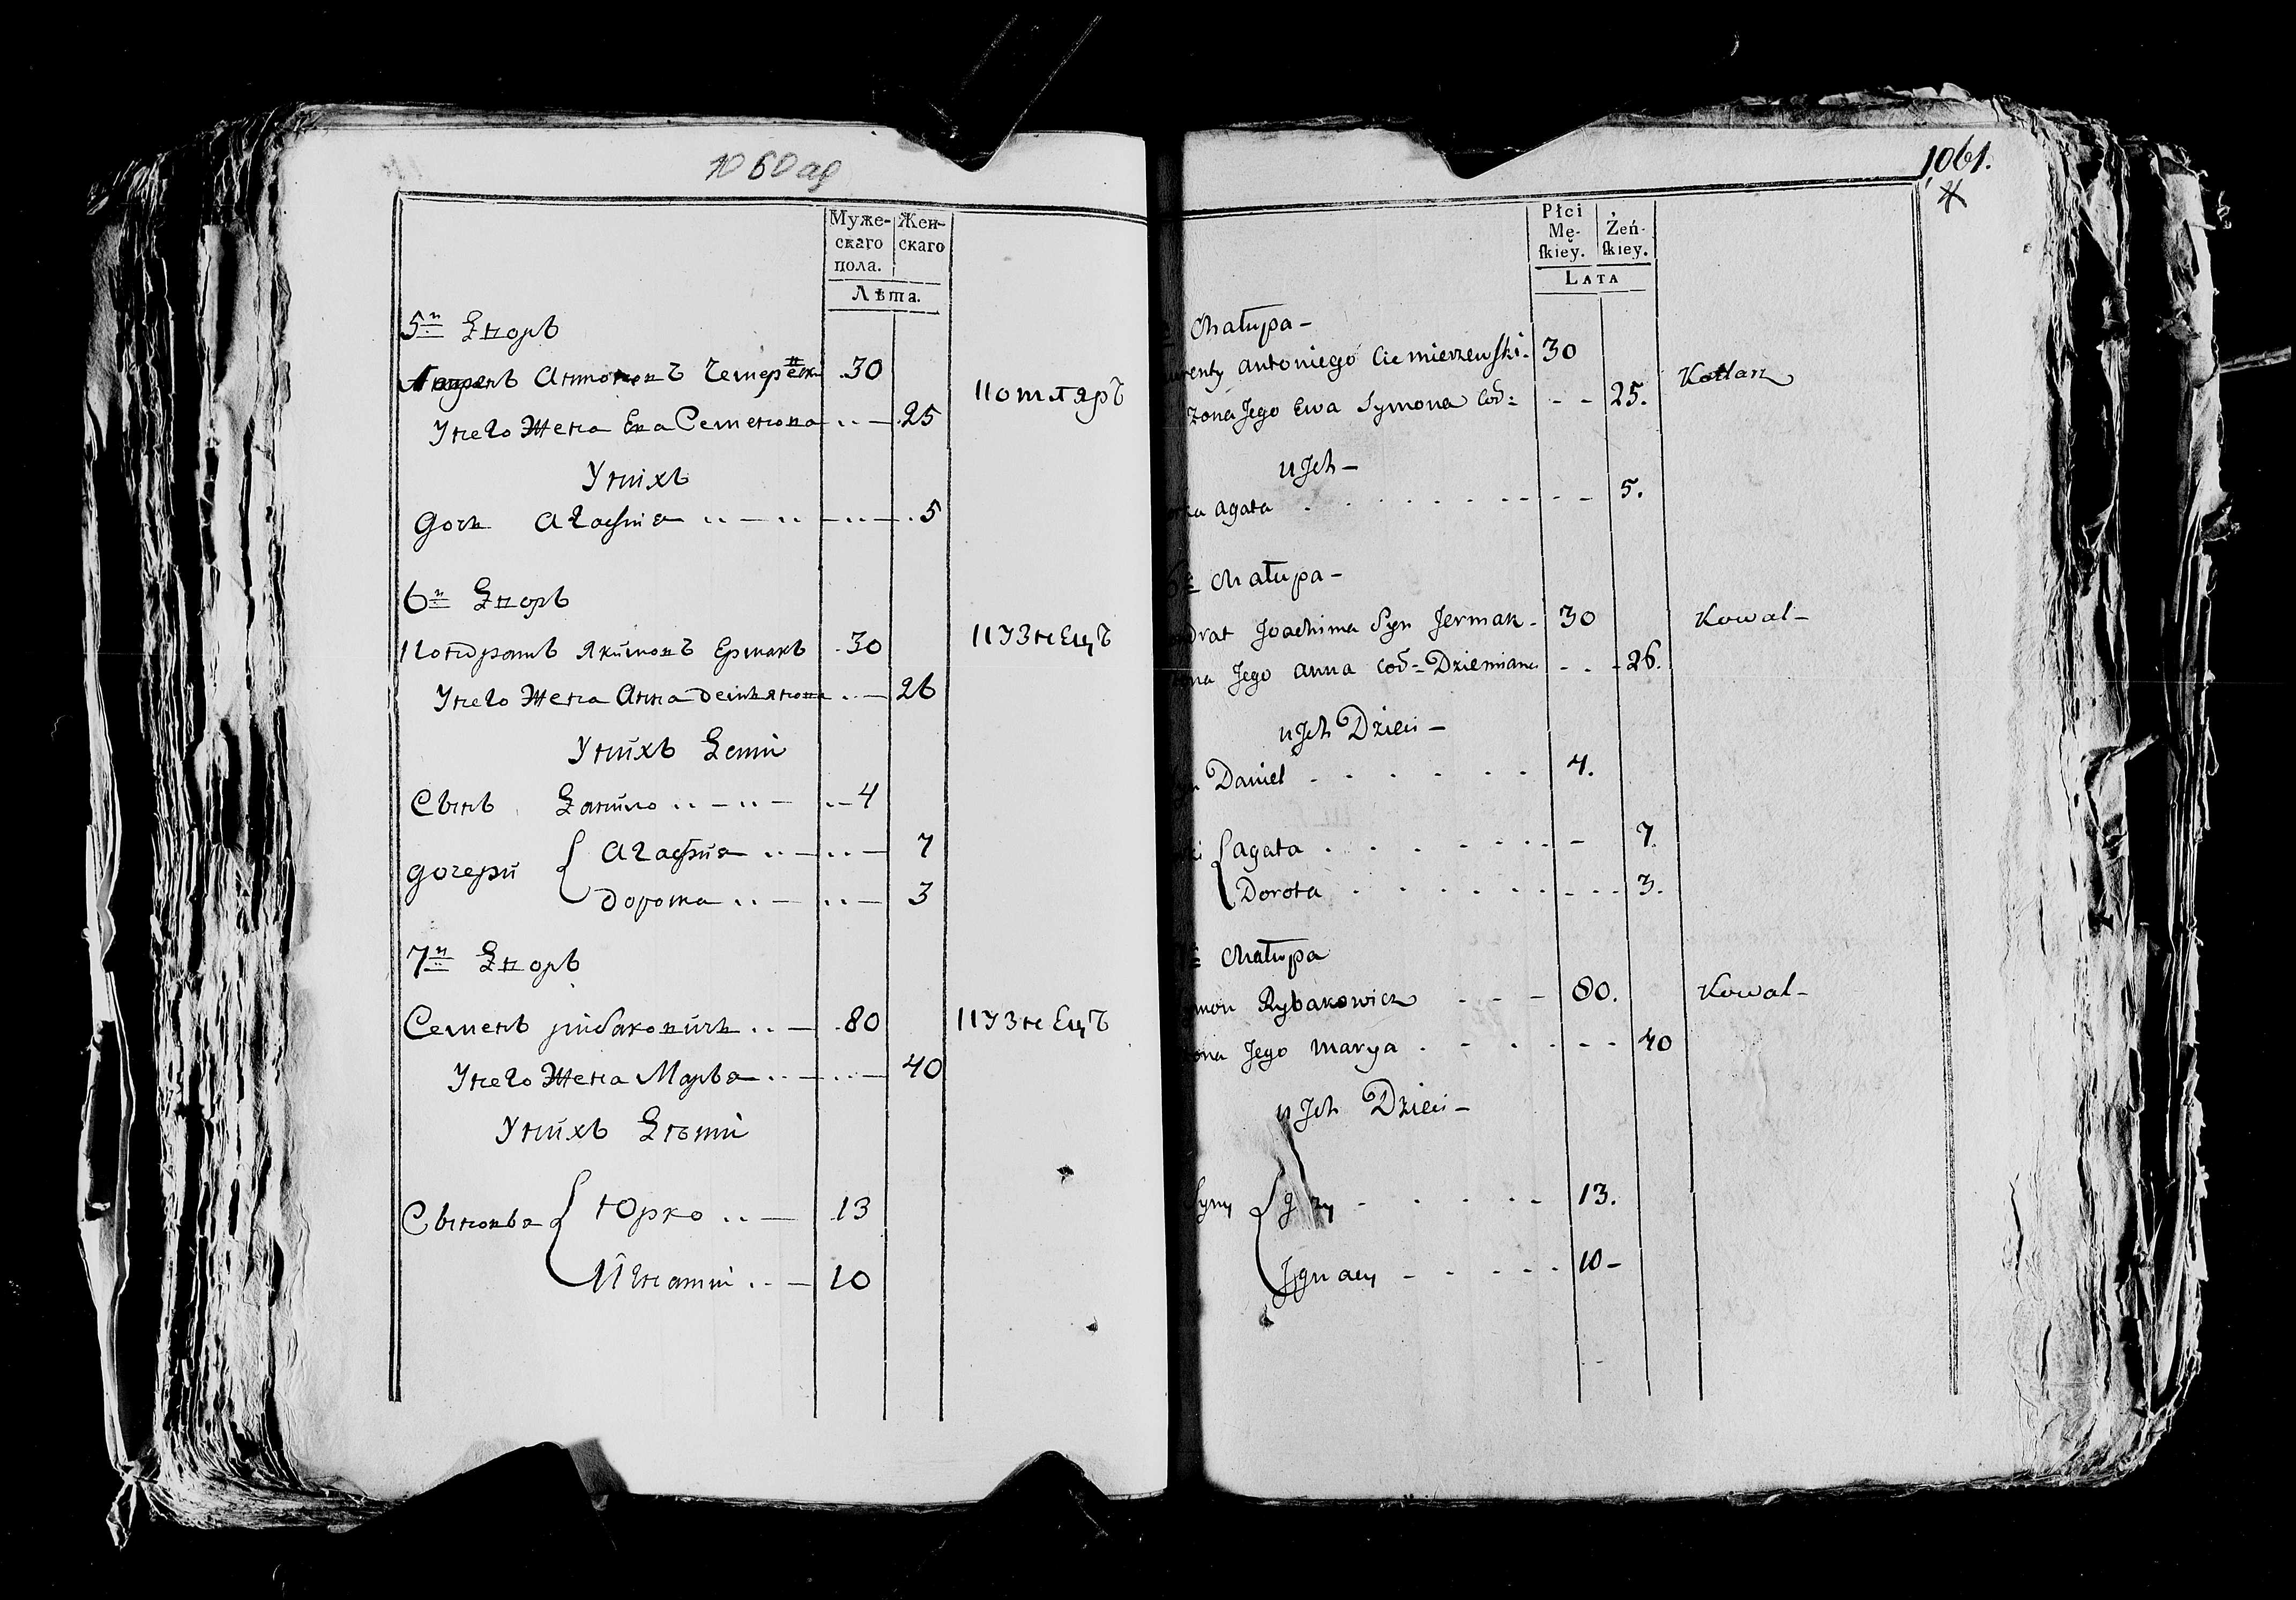 1060
Муже-
скаго
пола.
Жен-
скаго
Лѣта.
5й Дворъ
Антоновъ 30
Котляръ
У него Жена Ева Семенова 25
У нихъ
Дочь Агафия 5
6й Дворъ
Кондратъ Якимовъ Ермакъ 30
Кузнецъ
У него Жена Анна Демьянова 26
У нихъ Дети
Сынъ Данило 4
Дочери Агафия 7
Дорота 3
7й Дворъ
Семенъ рибаковичь 80
Кузнецъ
У него Жена Марья 40
У нихъ Дѣти
Сыновья Юрко 13
Игнати 10
1061.
Płci
Mę-
ſkiey.
Żeń-
ſkiey.
LATA
Chałupa -
Antoniego Ciemierzewski. 30
Kotlarz
żona Jego Ewa Symona Cod: 25.
u Jch -
Agata 5.
6 Chałupa -
Joachima Syn Jermak - 30
Kowal -
Jego Anna Cod = Dziemiana 26.
u Jch Dzieci -
Daniel 4.
Agata 7.
Dorota 3.
Chałupa
Rybakowicz 80.
Kowal -
Jego Marya 40
u Jch Dzieci -
Syny 13.
Jgnacy 10 -